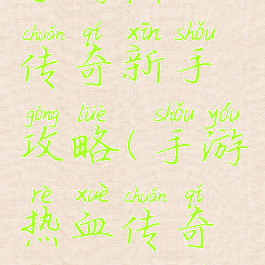 chuán qí xīn shǒu
传奇新手
gōng lüè shǒu yóu
攻略(手游
rè xuè chuán qí
热血传奇